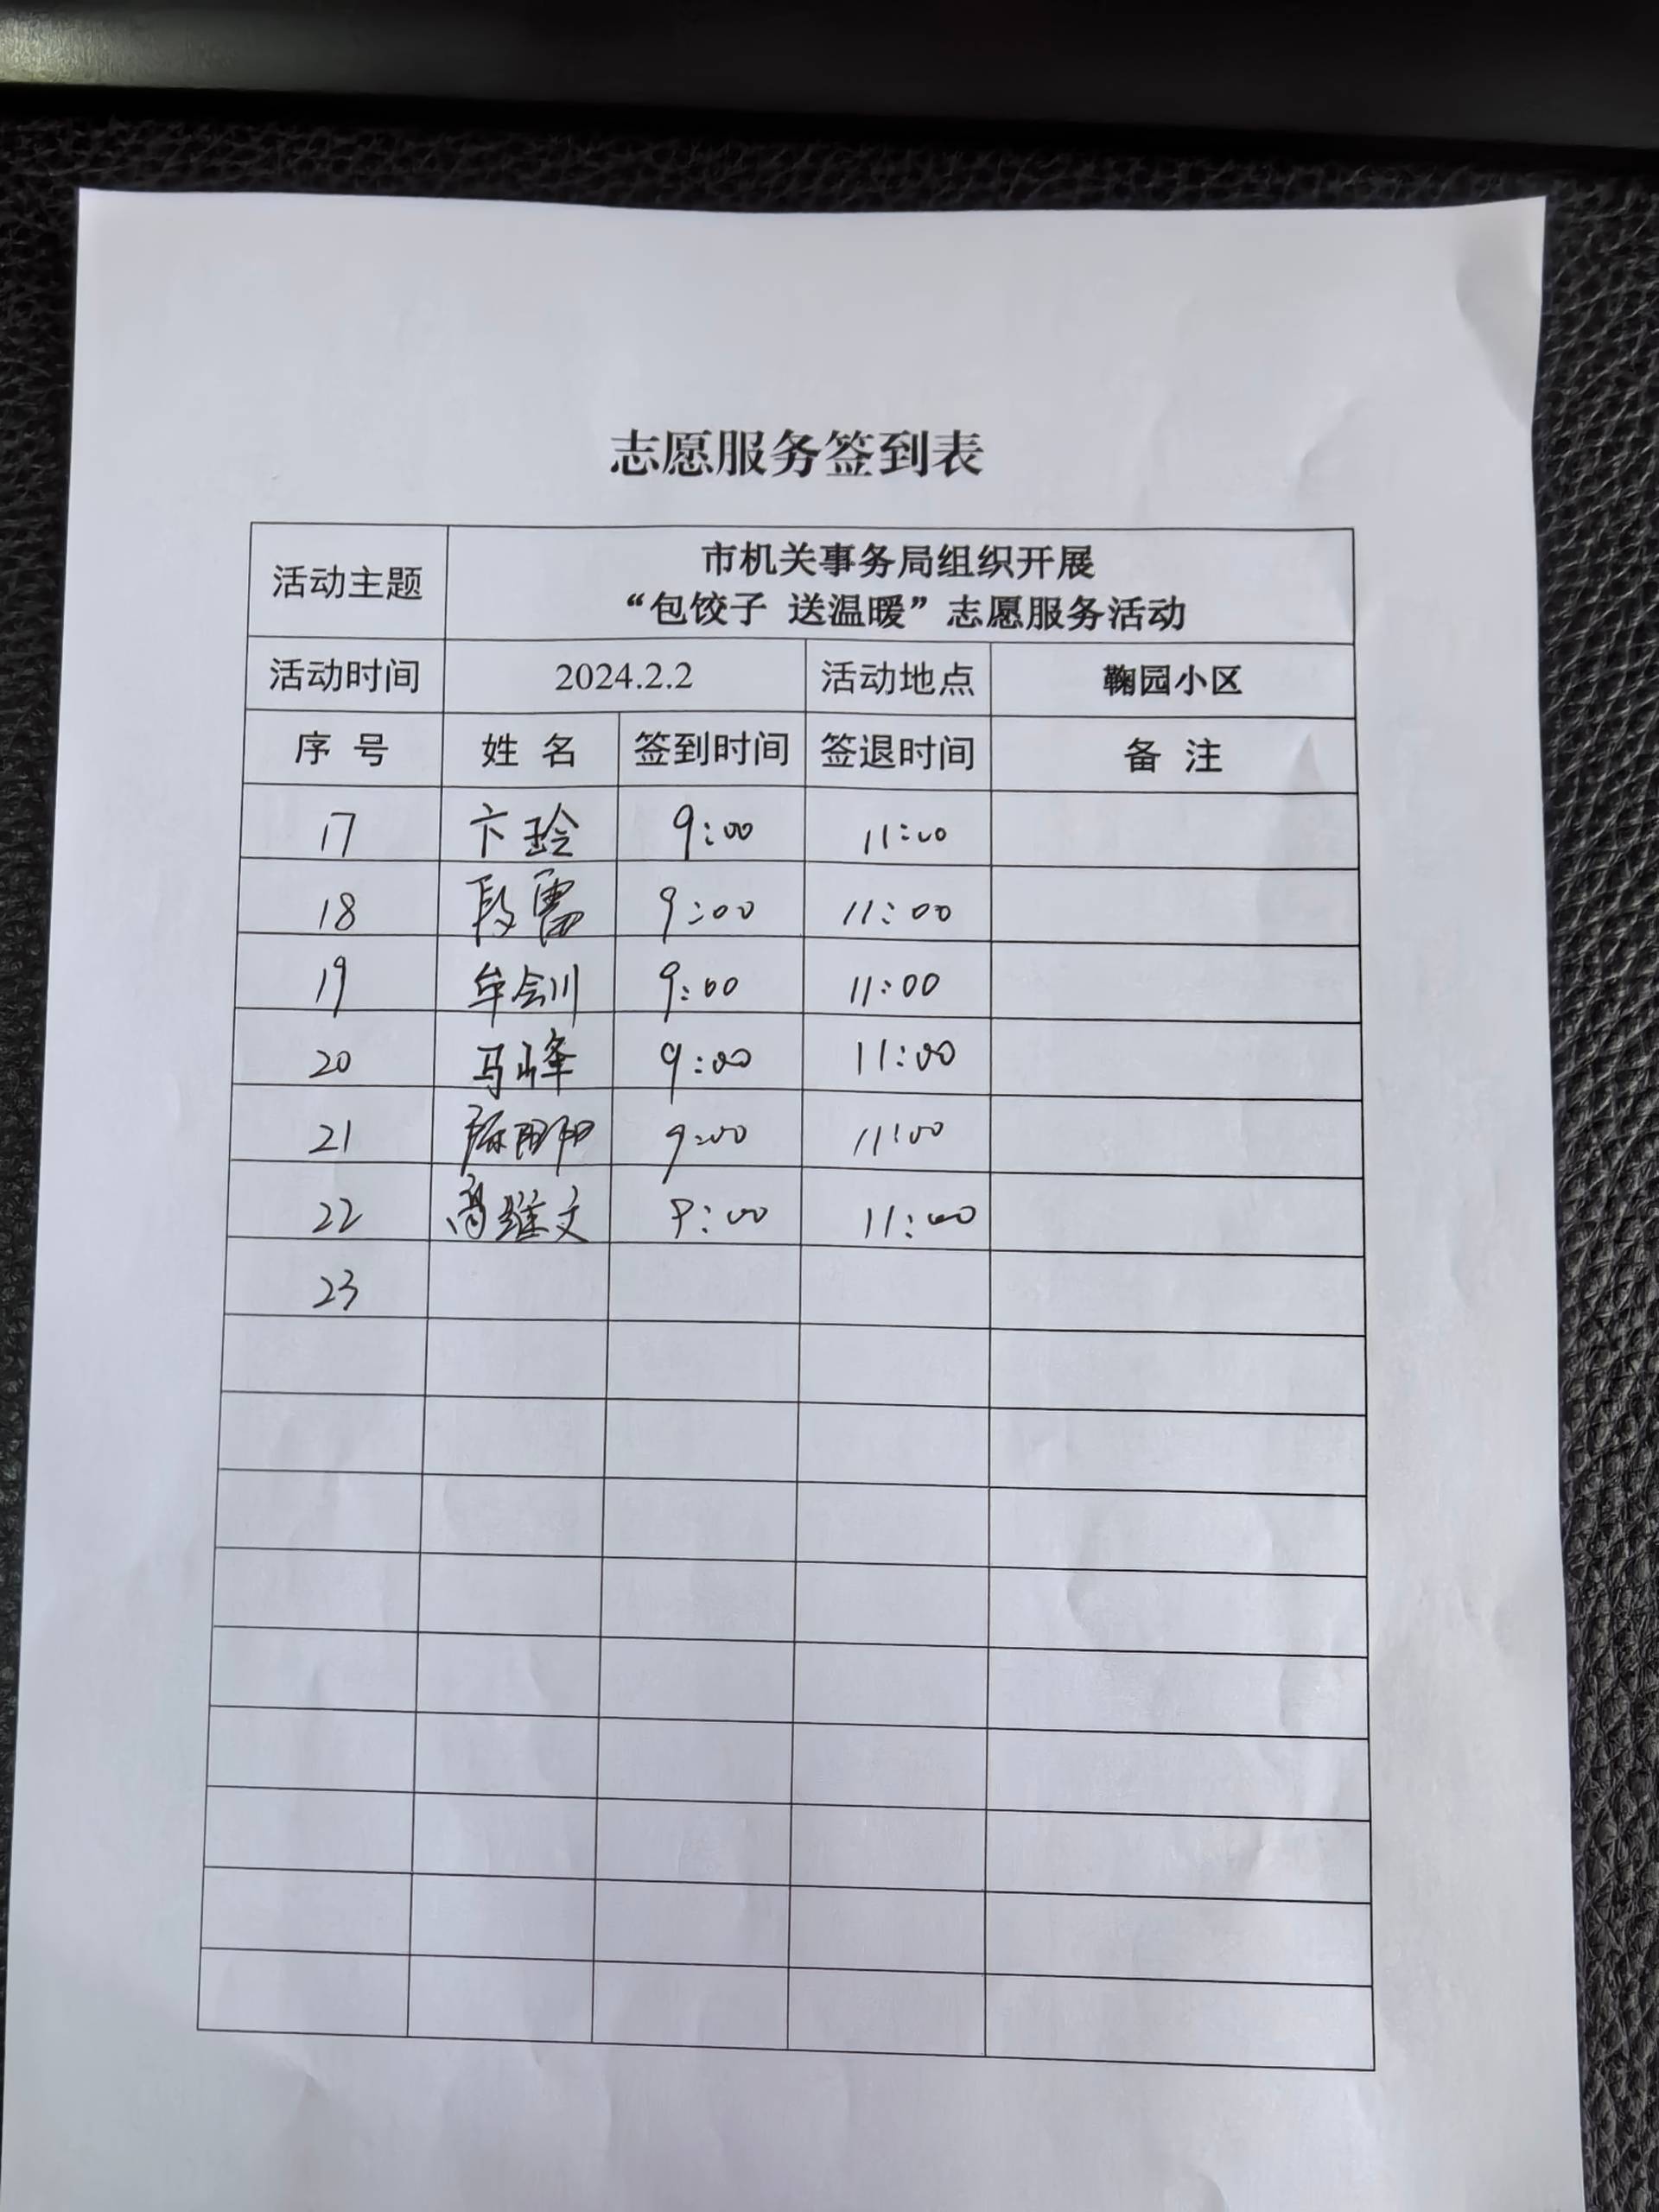 志愿服务签到表
活动主题
市机关事务局组织开展
“包饺子 送温暖”志愿服务活动
活动时间 2024.2.2 活动地点 鞠园小区
序号 姓名 签到时间 签退时间 备注
17 卞玲 9:00 11:00
18 段雷 9:00 11:00
19 牟会川 9:00 11:00
20 马峰 9:00 11:00
21 9:00 11:00
22 高继文 9:00 11:00
23